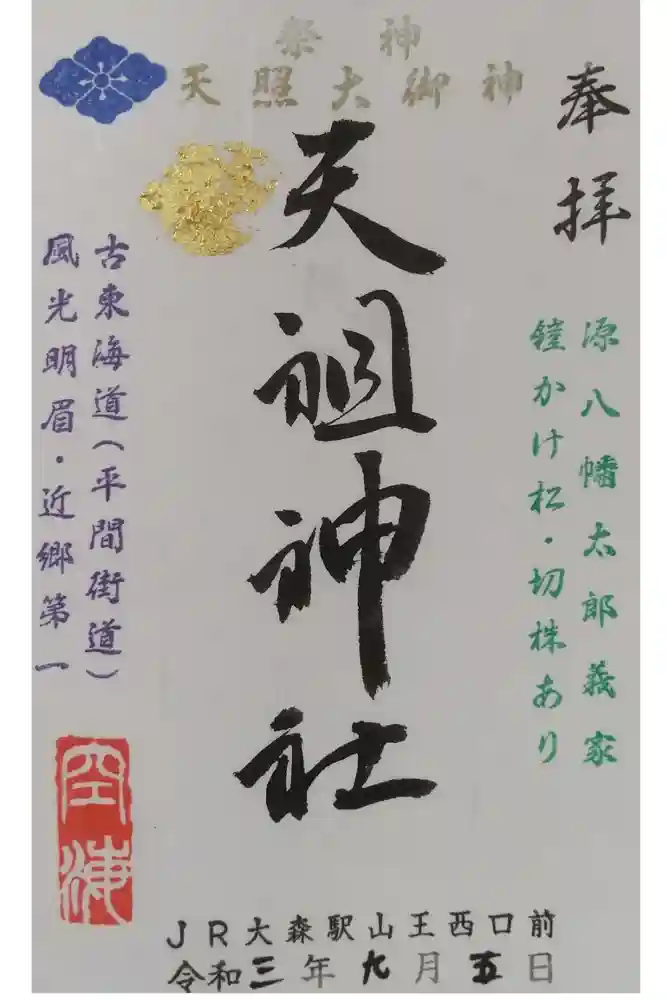 奉拝
源八幡太郎義家
鐙かけ松・切株あり
祭神
天照大御神
天祖神社
古東海道(平間街道)
風光明眉・近郷第一
空海
JR大森駅山王西口前
令和三年九月五日